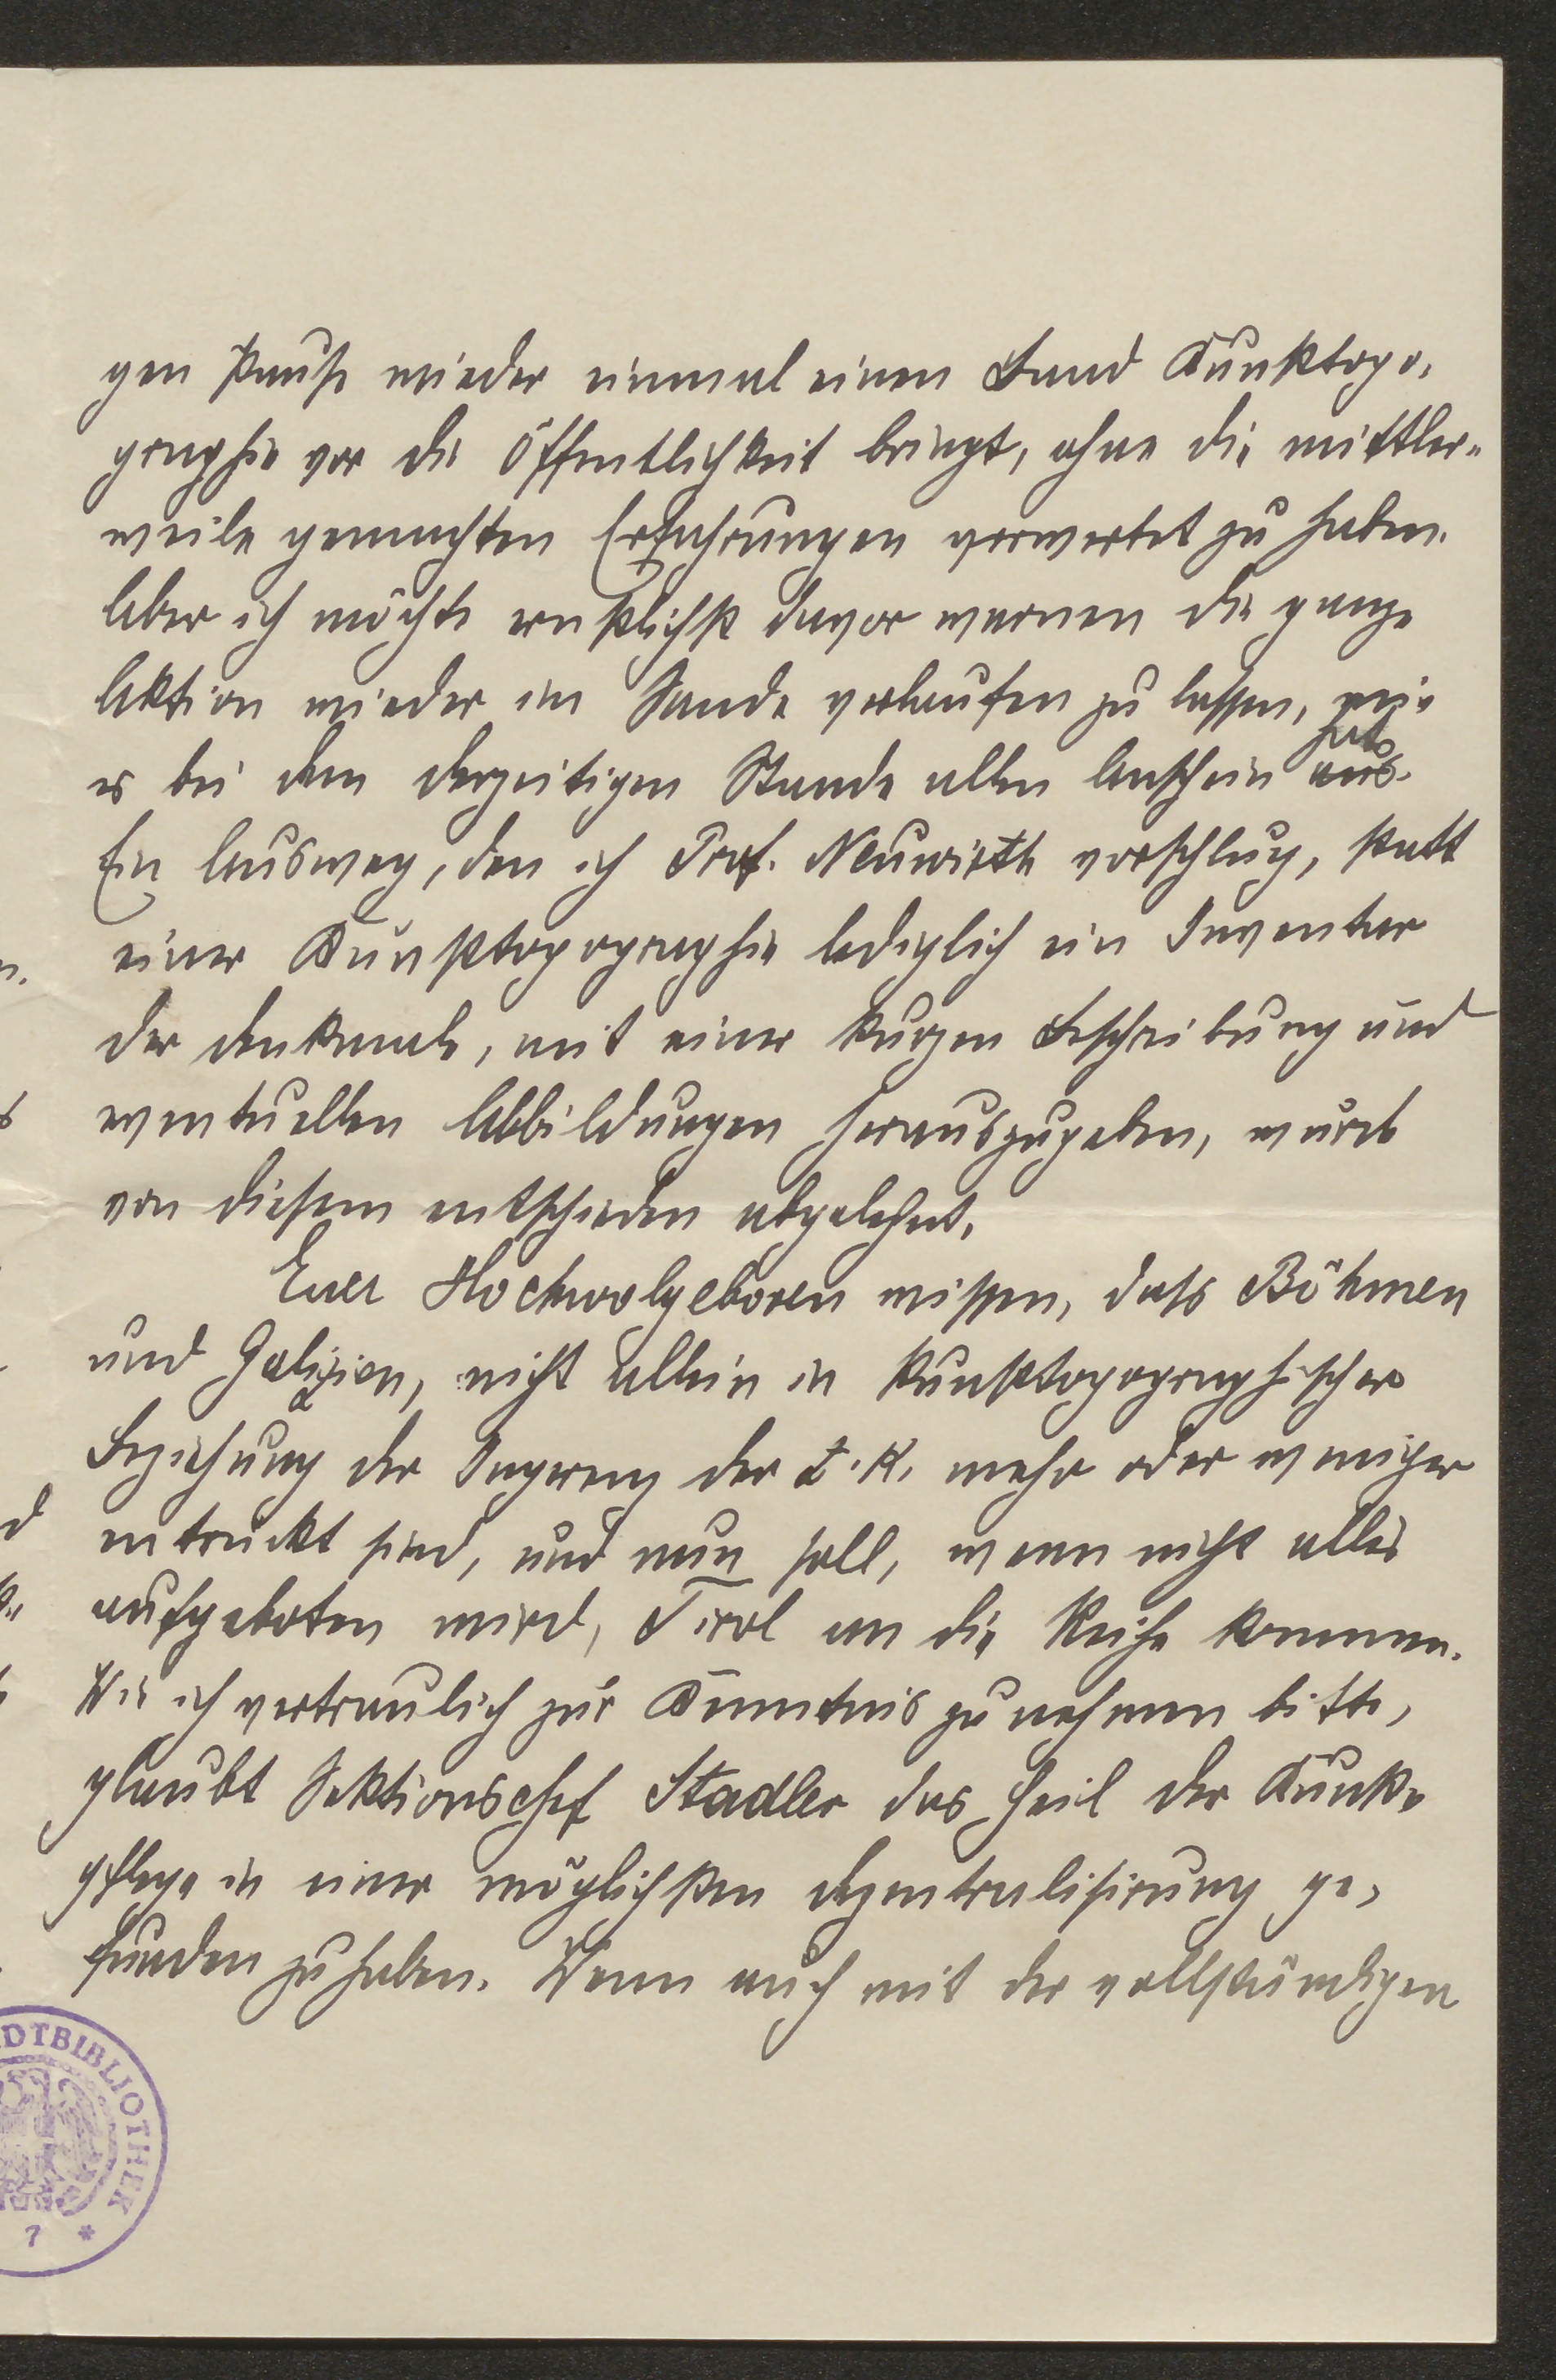 gen Pause wieder einmal einen Band Kunsttopo-
graphie vor die Öffentlichkeit bringt, ohne die mittler-
weile gemachten Erfahrungen verwertet zu haben.
Aber ich möchte ernstlichst davor warnen die ganze
Aktion wieder im Sande verlaufen zu lassen, wie
hat
es bei dem derzeitigen Stande allen Anschein aus.
Ein Ausweg, den ich Prof. Neuwirth vorschlug, statt
einer Kunsttopographie lediglich ein Inventar
der Denkmale, mit einer kurzen Beschreibung und
eventuellen Abbildungen herauszugeben, wurde
von diesem entschieden abgelehnt.
Euer Hochwolgeboren wissen, dass Böhmen
und Galizien, nicht allein in kunsttopographischer
Beziehung der Ingerenz der Z. K. mehr oder weniger
entrückt sind, und nun soll, wenn nicht alles
aufgeboten wird, Tirol an die Reihe kommen.
Wie ich vertraulich zur Kenntnis zu nehmen bitte,
glaubt Sektionschef Stadler das Heil der Kunst-
pflege in einer möglichsten Dezentralisirung ge-
funden zu haben. Wenn auch mit der vollständigen
DTBIBLIOTHEK
7 *